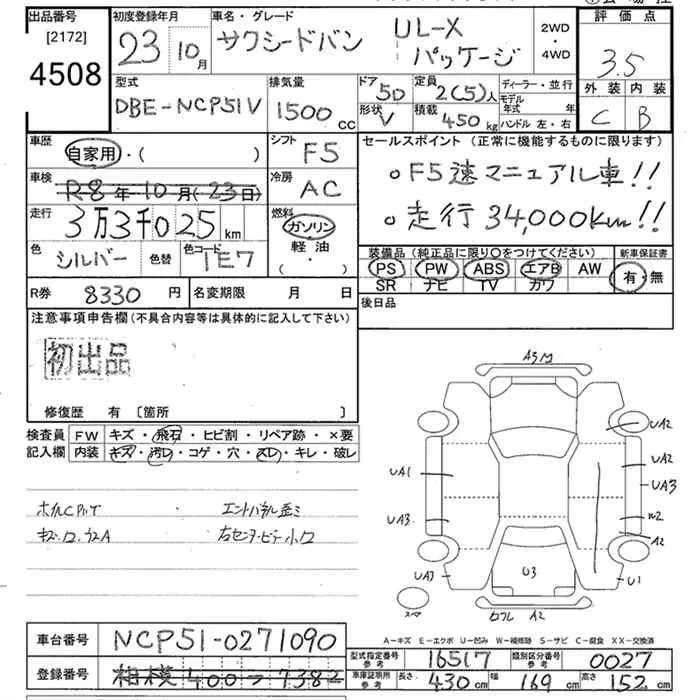 出品番号
[2172]
4508
初度登録年月
23 10月
車名・グレード
サクシードバン
UL-X
パッケージ
2WD
・
4WD
評価点
3.5
外装 内装
C B
型式
DBE-NCP51V
排気量
1500cc
ドア 5D
形状 V
定員 2(5)人
積載 450kg
ディーラー・並行
モデル年式 年
ハンドル 左・右
車歴
自家用・( )
シフト F5
車検
R8年10月(23日)
冷房 AC
走行
3万3千025km
燃料
ガソリン
軽油
( ・ )
色
シルバー
色替
色コード
1E7
R券 8330円
名変期限 月 日
セールスポイント(正常に機能するものに限ります)
○F5速マニュアル車!!
○走行34,000km!!
装備品(純正品に限り〇をつけてください)
PS PW ABS エアB AW
SR ナビ TV カワ
新車保証書
有・無
後日品
注意事項申告欄(不具合内容等は具体的に記入して下さい)
初出品
修復歴 有〔箇所 〕
検査員
記入欄
FW キズ・飛石・ヒビ割・リペア跡・×要
内装 キズ・汚レ・コゲ・穴・スレ・キレ・破レ
UA2
UA1
UA2
UA3
UA3
W2
A2
UA3
U3
U1
スペア
A2
A-キズ E-エクボ U-凹み W-補修跡 S-サビ C-腐食 XX-交換済
車台番号 NCP51-0271090
登録番号 相模 400 つ 7382
型式指定番号
参考
16517
類別区分番号
参考
0027
車庫証明所
参考
長さ 430cm 幅 169cm 高さ 152cm